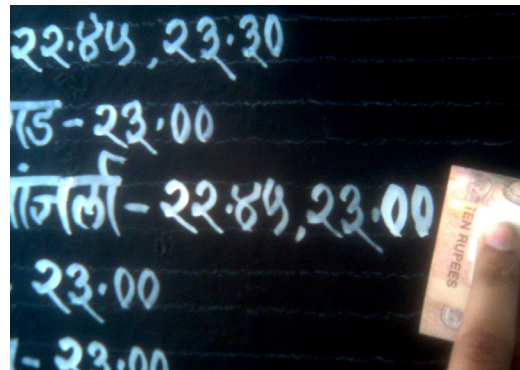 २२.४५, २३.३०
गड - २३.००
ांजर्ला - २२.४५, २३.००
- २३.००
- २३.००
TEN RUPEES